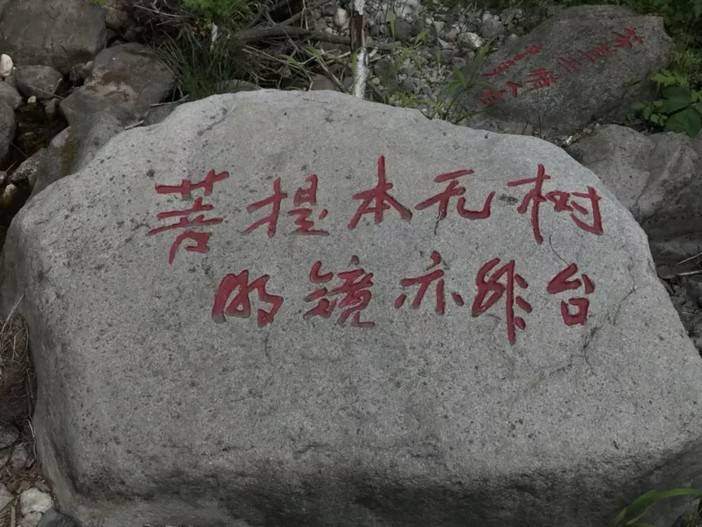 菩提本无树
明镜亦非台